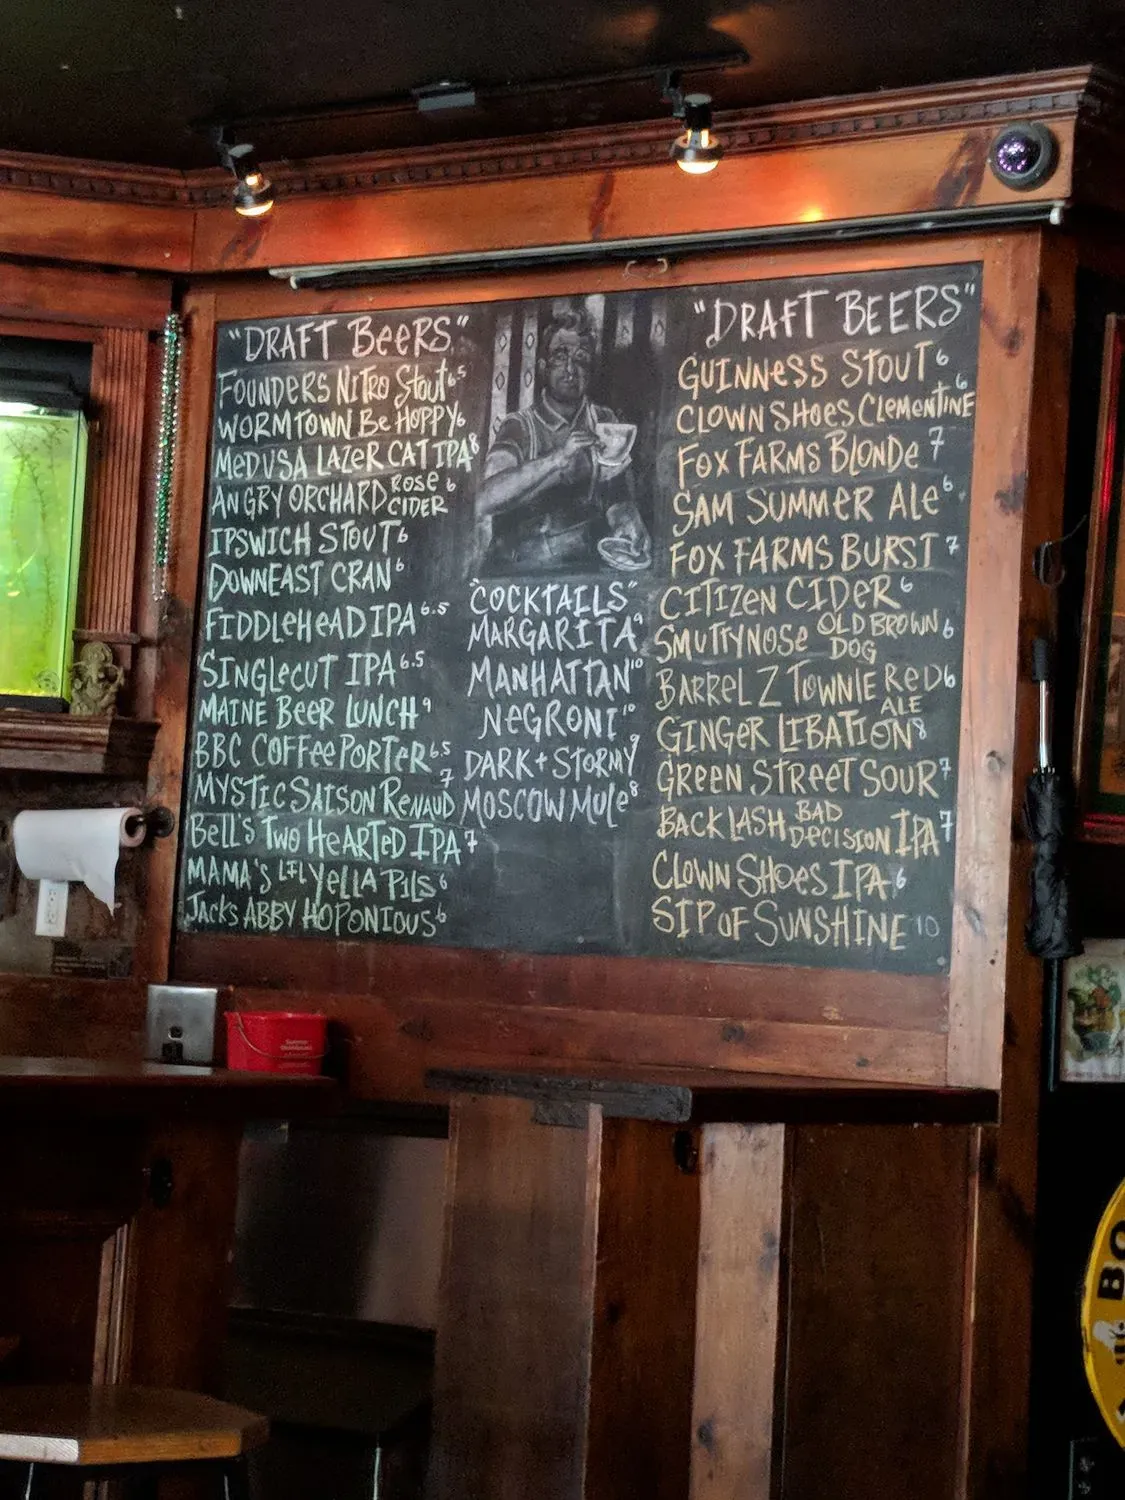 "DRAFT BEERS"
FOUNDERS NITRO STOUT 6.5
WORMTOWN BE HOPPY 6
MEDUSA LAZER CAT IPA 8
ANGRY ORCHARD ROSE CIDER 6
IPSWICH STOUT 6
DOWNEAST CRAN 6
FIDDLEHEAD IPA 6.5
SINGLECUT IPA 6.5
MAINE BEER LUNCH 9
BBC COFFEE PORTER 6.5
MYSTIC SAISON RENAUD 7
BELL'S TWO HEARTED IPA 7
MAMA'S LTL YELLA PILS 6
JACK'S ABBY HOPONIOUS 6
"COCKTAILS"
MARGARITA 9
MANHATTAN 10
NEGRONI 10
DARK + STORMY 9
MOSCOW MULE 8
"DRAFT BEERS"
GUINNESS STOUT 6
CLOWN SHOES CLEMENTINE 6
FOX FARMS BLONDE 7
SAM SUMMER ALE 6
FOX FARMS BURST 7
CITIZEN CIDER 6
SMUTTYNOSE OLD BROWN DOG 6
BARREL Z TOWNIE RED ALE 6
GINGER LIBATION 8
GREEN STREET SOUR 7
BACKLASH BAD DECISION IPA 7
CLOWN SHOES IPA 6
SIP OF SUNSHINE 10
BO